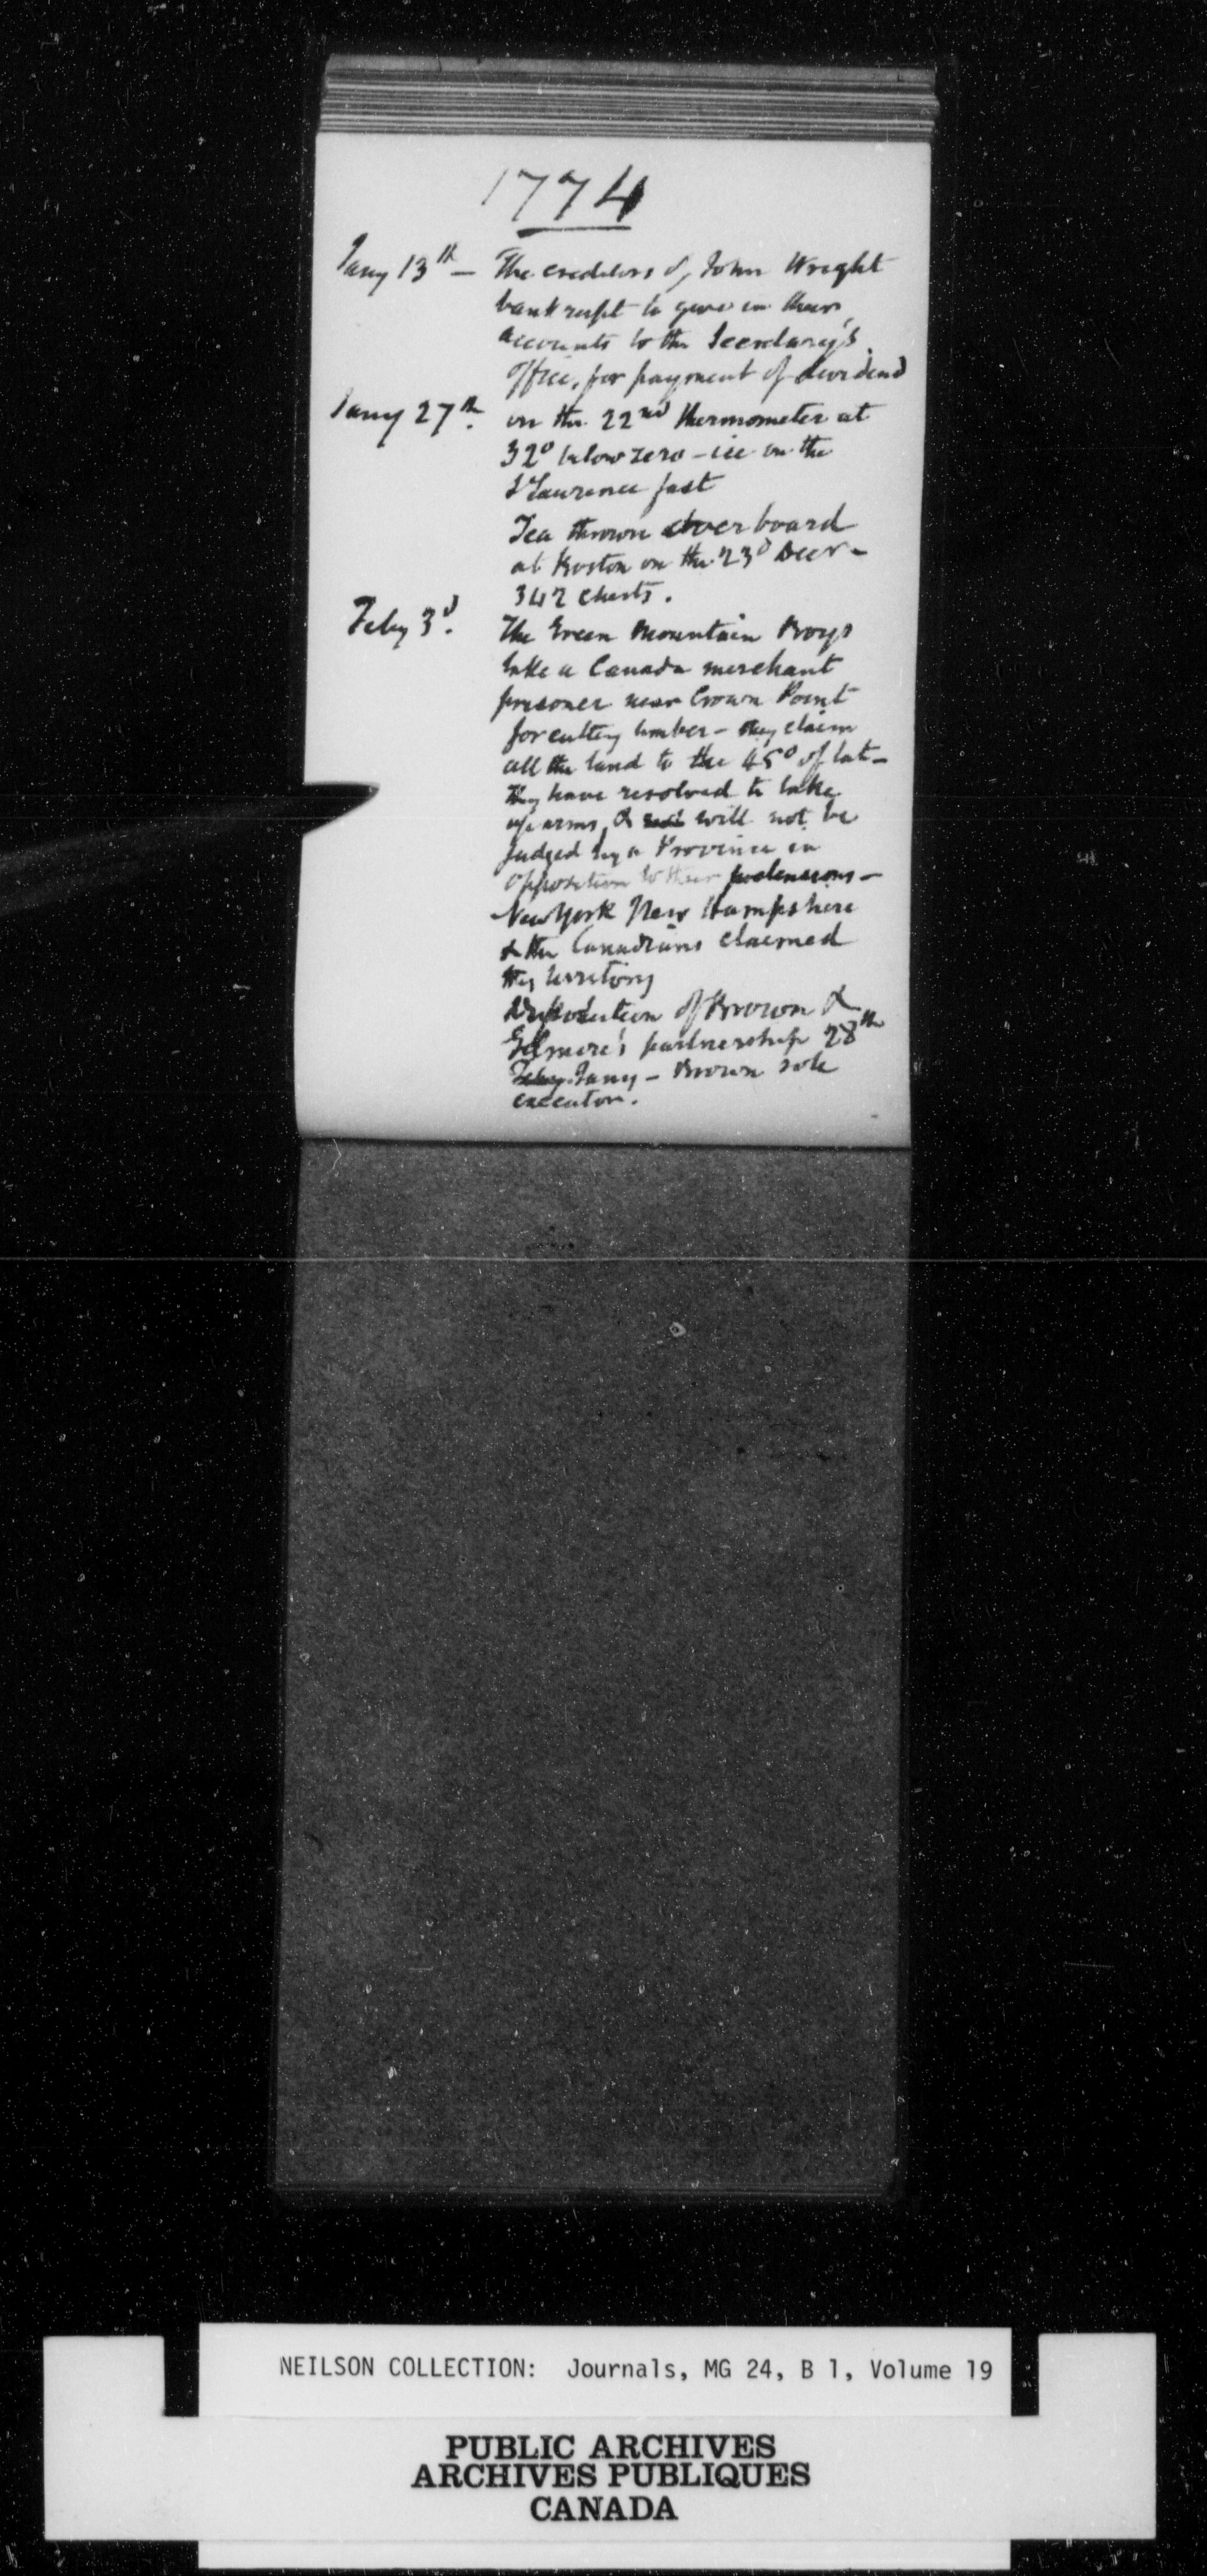 1774
Jany 13th — The creditors of John Wright
bankrupt to give in their
accounts to the Secretary's
office, for payment of dividend
Jany 27th. on the 22nd thermometer at
32° below zero – ice on the
St Lawrence fast
Tea thrown overboard
at Boston on the 23d Decr –
342 chests.
Feby 3d. The Green Mountain Boys
take a Canada merchant
prisoner near Crown Point
for cutting timber – they claim
all the land to the 45° of lat –
They have resolved to take
up arms, & will not be
judged by a Province in
opposition to their pretensions –
New York New Hampshire
& the Canadians claimed
this territory
Dissolution of Brown &
Gilmore's partnership 28th
Jany – Brown sole
executor.
NEILSON COLLECTION: Journals, MG 24, B 1, Volume 19
PUBLIC ARCHIVES
ARCHIVES PUBLIQUES
CANADA